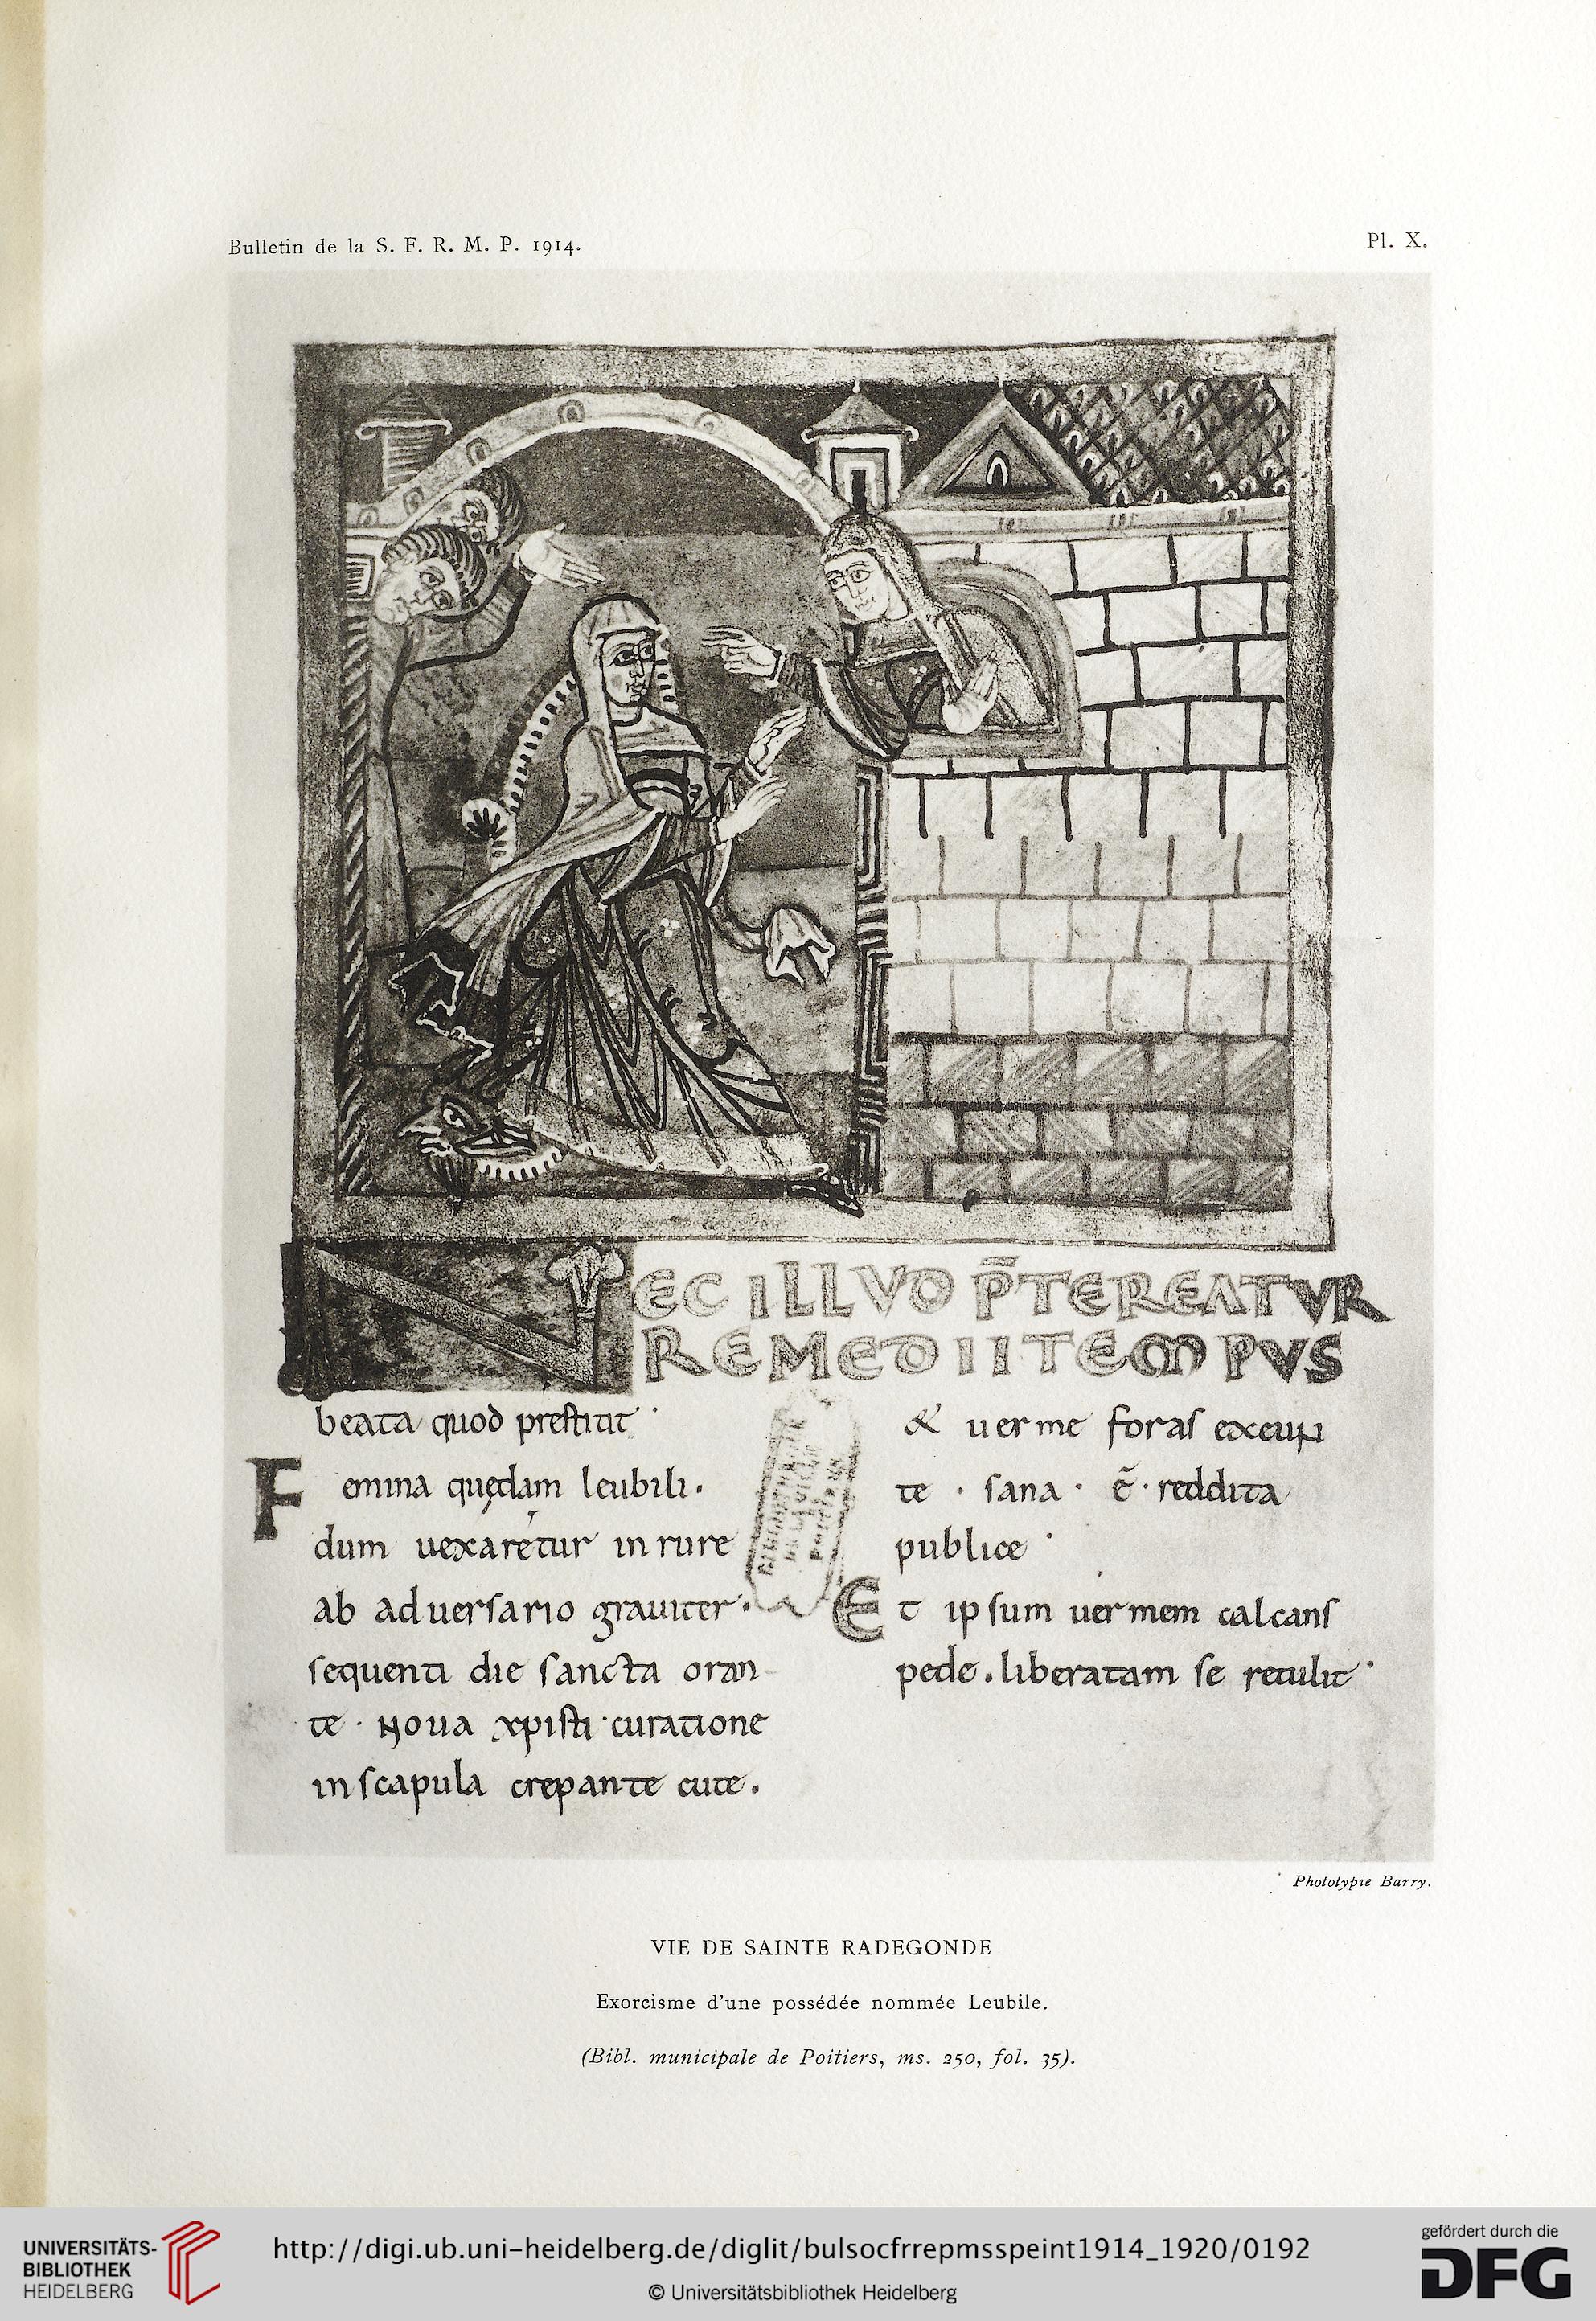 Bulletin de la S. F. R. M. P. 1914.
Pl. X.
NEC ILLVD P̄TEREATVR
REMEDII TEMPVS
beata quod prestitit ·
Femina quędam leubili·
dum uexaretur in rure
ab aduersario grauiter·
sequenti die sancta oran-
te · Noua xpisti curatione
in scapula crepante cute.
& uerme foras exeun
te · sana · ē · reddita
publice ·
Et ipsum uermem calcans
pede. liberatam se retulit ·
Phototypie Barry.
VIE DE SAINTE RADEGONDE
Exorcisme d'une possédée nommée Leubile.
(Bibl. municipale de Poitiers, ms. 250, fol. 35).
UNIVERSITÄTS-
BIBLIOTHEK
HEIDELBERG
http://digi.ub.uni-heidelberg.de/diglit/bulsocfrrepmsspeint1914_1920/0192
© Universitätsbibliothek Heidelberg
gefördert durch die
DFG